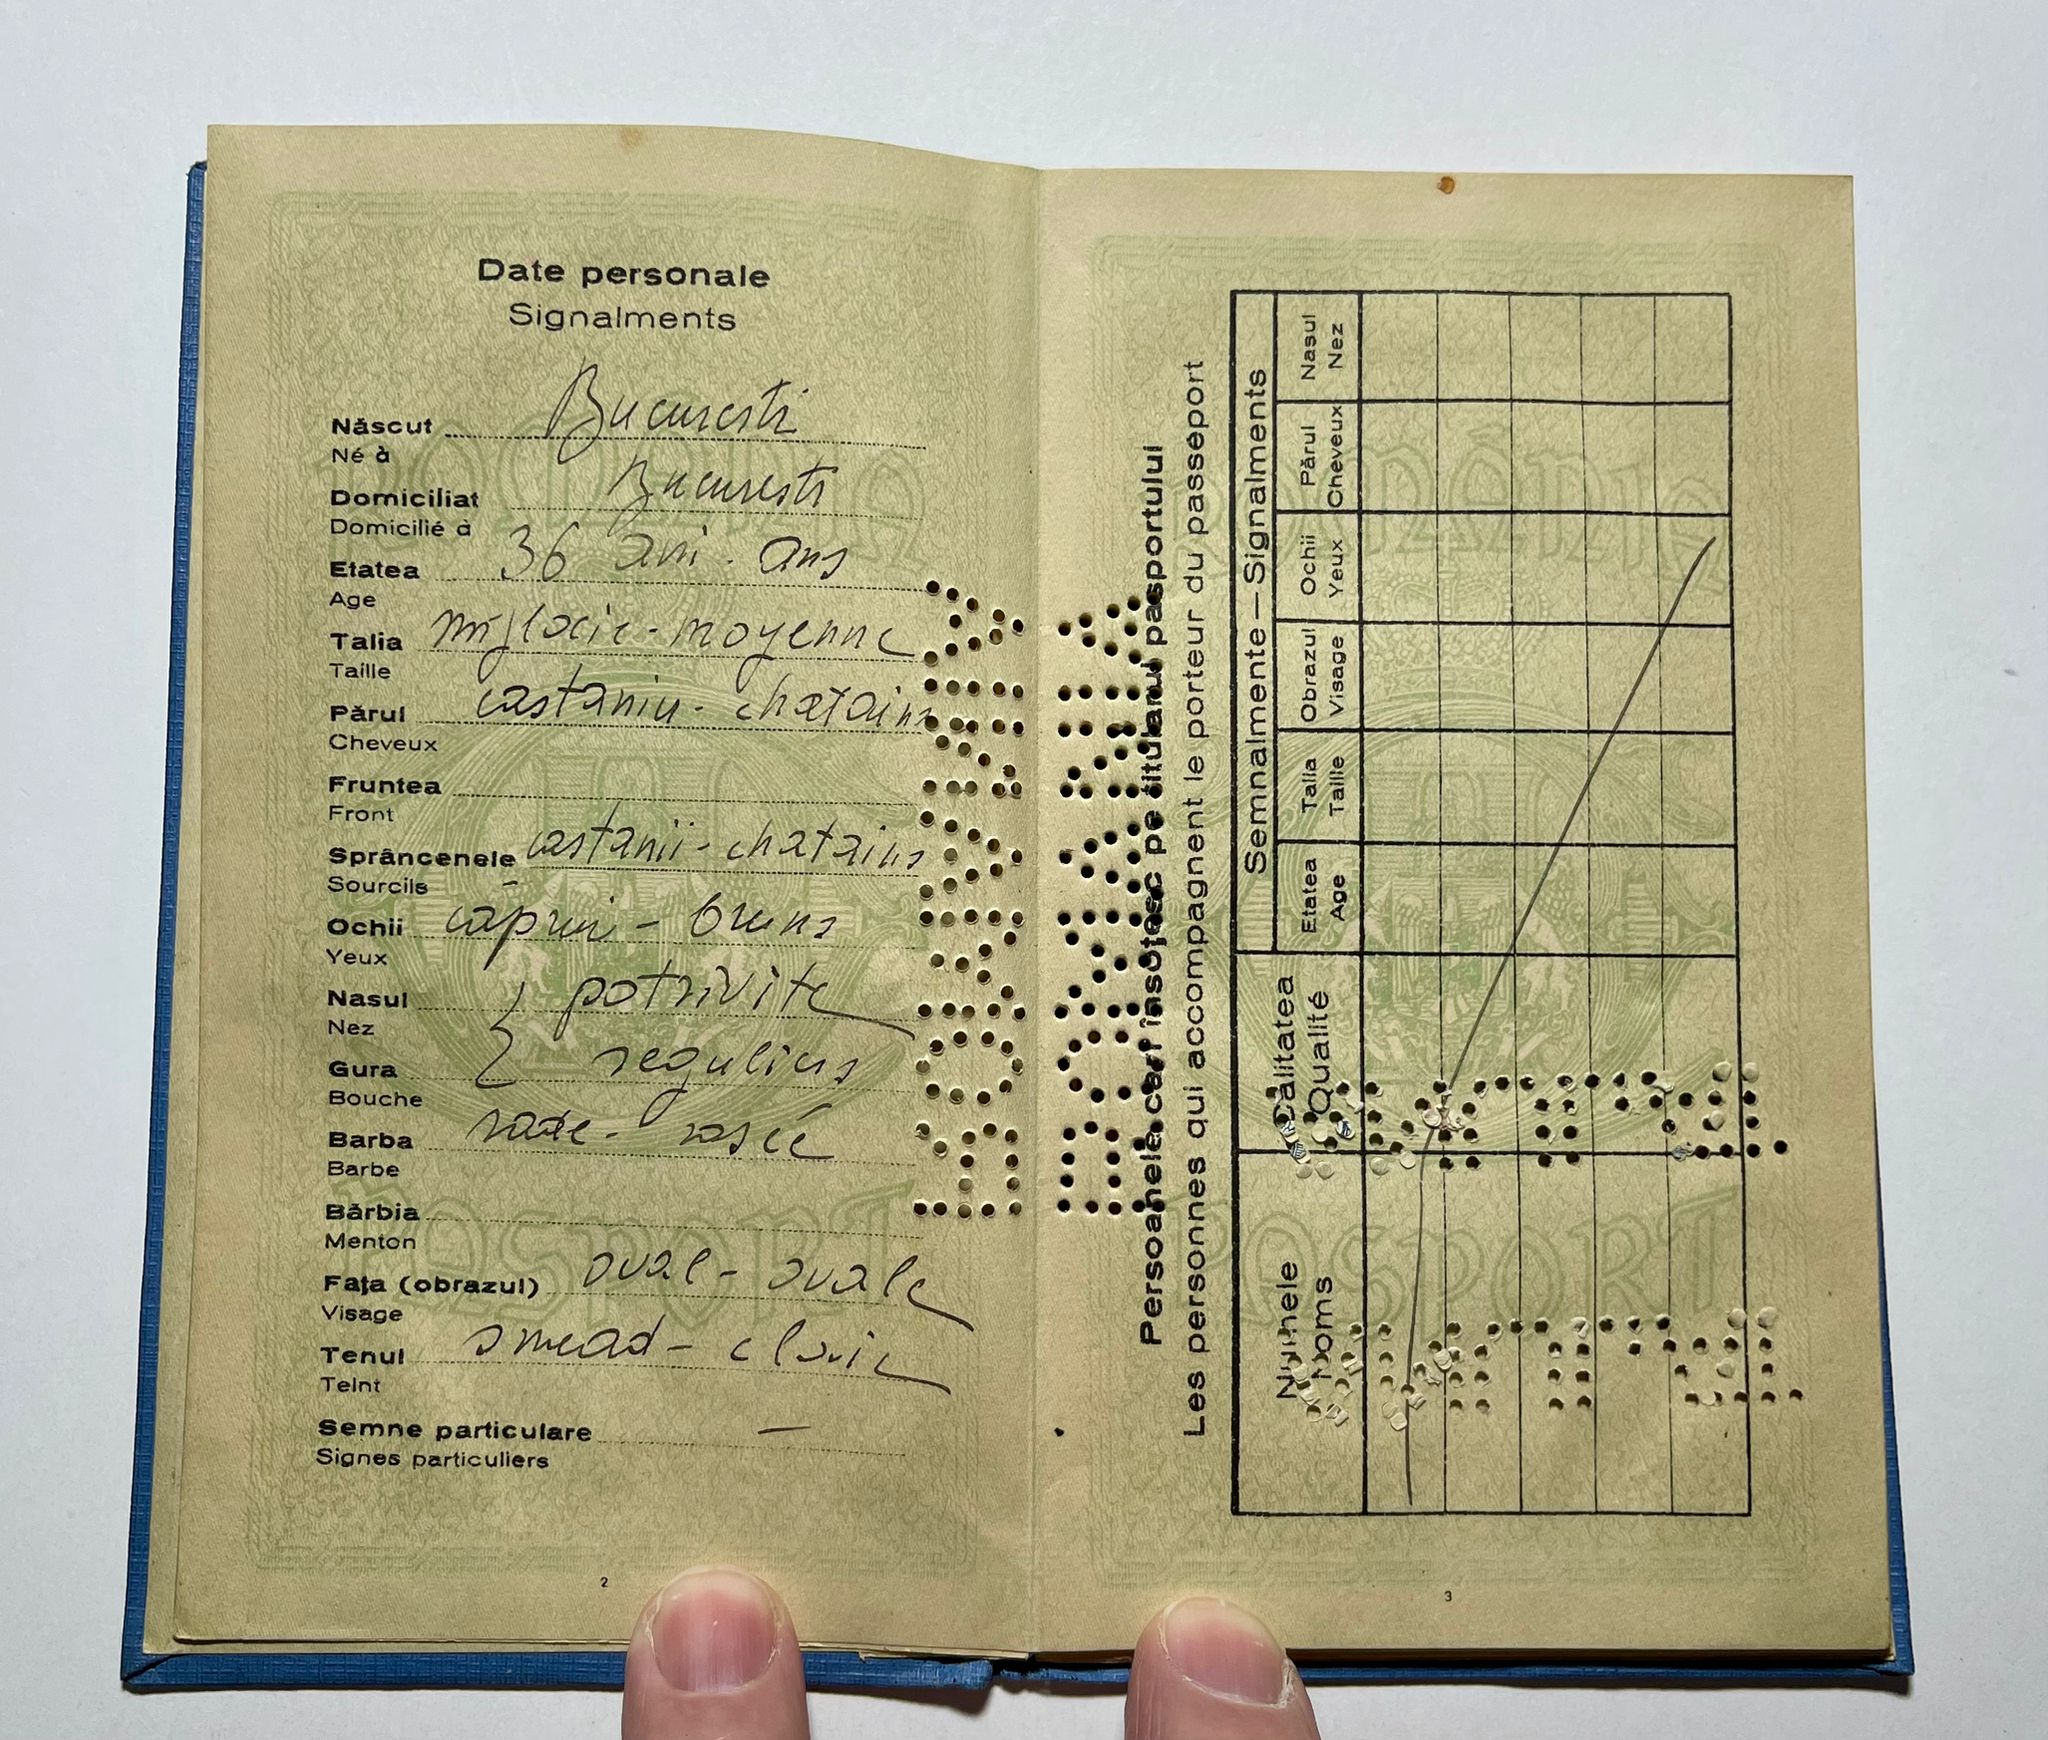 Date personale
Signalments
Născut Bucuresti
Né à
Domiciliat Bucuresti
Domicilié à
Etatea 36 ani - ans
Age
Talia mijlocie - moyenne
Taille
Părul castaniu - chatains
Cheveux
Fruntea
Front
Sprâncenele castanii - chatains
Sourcils
Ochii căprui - bruns
Yeux
Nasul potrivite
Nez
Gura reguliers
Bouche
Barba rade - rasée
Barbe
Bărbia
Menton
Fața (obrazul) oval - ovale
Visage
Tenul smead - claire
Teint
Semne particulare —
Signes particuliers
2
ROMANIA
ROMANIA
Persoanele cari însoțesc pe titularul pasportului
Les personnes qui accompagnent le porteur du passeport
Numele
Noms
Calitatea
Qualité
Semnalmente — Signalments
Etatea
Age
Talia
Taille
Obrazul
Visage
Ochii
Yeux
Părul
Cheveux
Nasul
Nez
România
PASPORT
România
PASPORT
3